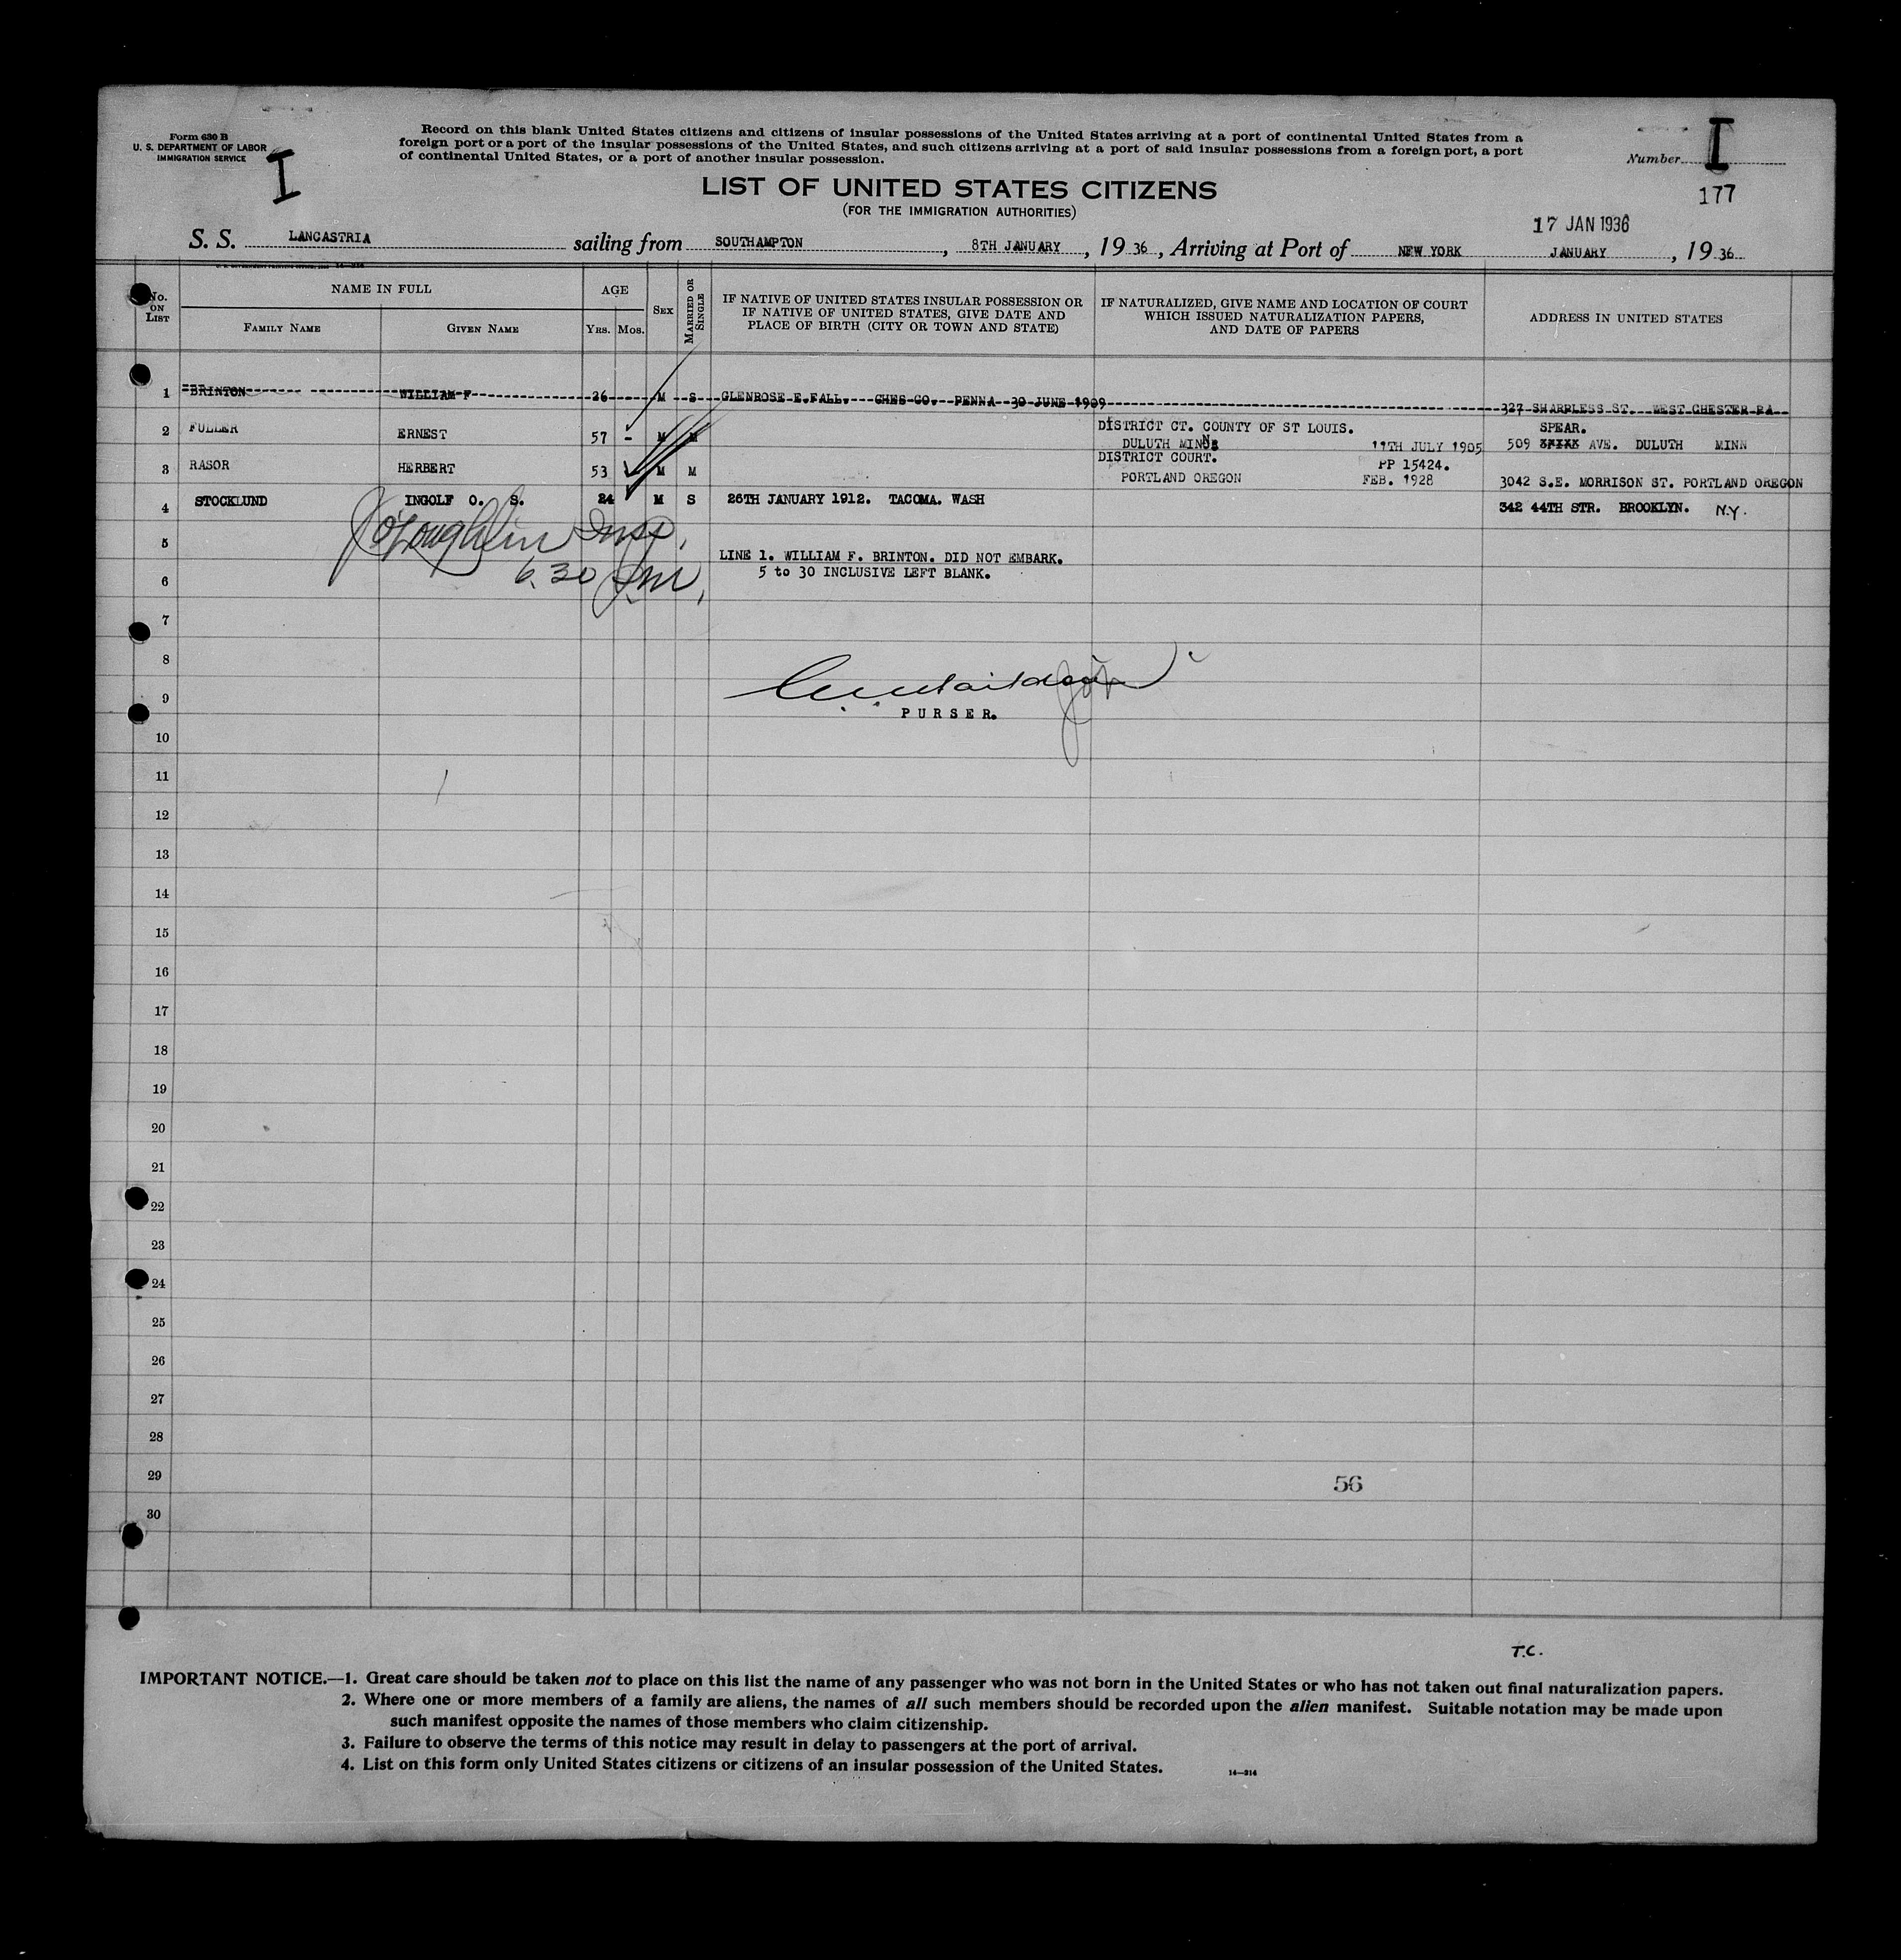 Form 630 B
U. S. DEPARTMENT OF LABOR
IMMIGRATION SERVICE
I
Record on this blank United States citizens and citizens of insular possessions of the United States arriving at a port of continental United States from a
foreign port or a port of the insular possessions of the United States, and such citizens arriving at a port of said insular possessions from a foreign port, a port
of continental United States, or a port of another insular possession.
Number I
177
LIST OF UNITED STATES CITIZENS
(FOR THE IMMIGRATION AUTHORITIES)
17 JAN 1936
S. S. LANCASTRIA sailing from SOUTHAMPTON, 8TH JANUARY, 19 36, Arriving at Port of NEW YORK JANUARY, 19 36
No. ON LIST
NAME IN FULL
FAMILY NAME
GIVEN NAME
AGE
YRS.
MOS.
SEX
MARRIED OR SINGLE
IF NATIVE OF UNITED STATES INSULAR POSSESSION OR
IF NATIVE OF UNITED STATES, GIVE DATE AND
PLACE OF BIRTH (CITY OR TOWN AND STATE)
IF NATURALIZED, GIVE NAME AND LOCATION OF COURT
WHICH ISSUED NATURALIZATION PAPERS,
AND DATE OF PAPERS
ADDRESS IN UNITED STATES
1 BRINTON WILLIAM F 26 M S GLENROSE E.FALL. CHES CO. PENNA 30 JUNE 1909 327 SHARPLESS ST. WEST CHESTER PA
DISTRICT CT. COUNTY OF ST LOUIS. SPEAR.
2 FULLER ERNEST 57 - M M DULUTH MINN 11TH JULY 1905 509 AVE. DULUTH MINN
DISTRICT COURT. PP 15424.
3 RASOR HERBERT 53 M M PORTLAND OREGON FEB. 1928 3042 S.E. MORRISON ST. PORTLAND OREGON
4 STOCKLUND INGOLF O. S. 24 M S 26TH JANUARY 1912. TACOMA. WASH 342 44TH STR. BROOKLYN. N.Y.
O'Loughlin Insp.
5
LINE 1. WILLIAM F. BRINTON. DID NOT EMBARK.
6.30 P.M.
5 to 30 INCLUSIVE LEFT BLANK.
6
7
8
9
PURSER.
10
11
12
13
14
15
16
17
18
19
20
21
22
23
24
25
26
27
28
29
56
30
T.C.
IMPORTANT NOTICE.—1. Great care should be taken not to place on this list the name of any passenger who was not born in the United States or who has not taken out final naturalization papers.
2. Where one or more members of a family are aliens, the names of all such members should be recorded upon the alien manifest. Suitable notation may be made upon
such manifest opposite the names of those members who claim citizenship.
3. Failure to observe the terms of this notice may result in delay to passengers at the port of arrival.
4. List on this form only United States citizens or citizens of an insular possession of the United States.
14—314